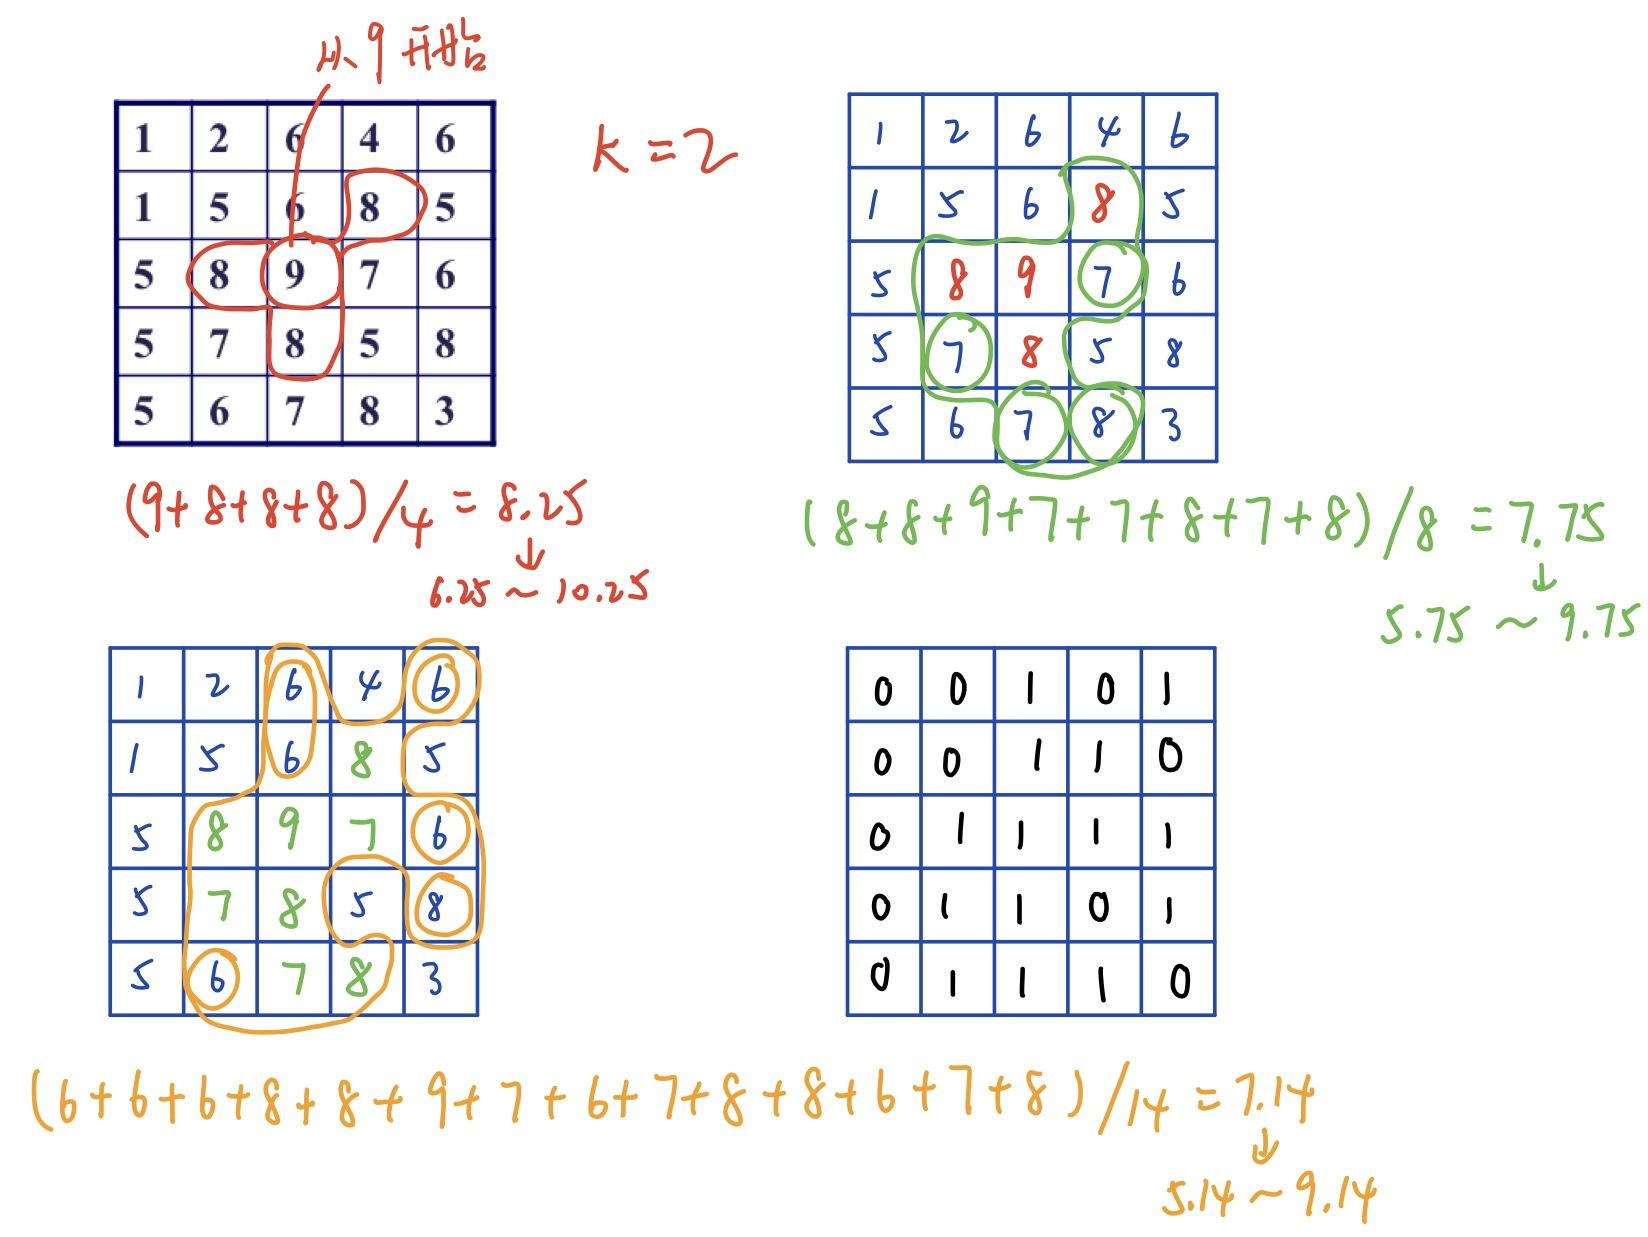 从9开始
k=2
1 2 6 4 6
1 5 6 8 5
5 8 9 7 6
5 7 8 5 8
5 6 7 8 3
(9+8+8+8)/4=8.25
↓
6.25~10.25
1 2 6 4 6
1 5 6 8 5
5 8 9 7 6
5 7 8 5 8
5 6 7 8 3
(8+8+9+7+7+8+7+8)/8=7.75
↓
5.75~9.75
1 2 6 4 6
1 5 6 8 5
5 8 9 7 6
5 7 8 5 8
5 6 7 8 3
0 0 1 0 1
0 0 1 1 0
0 1 1 1 1
0 1 1 0 1
0 1 1 1 0
(6+6+6+8+8+9+7+6+7+8+8+6+7+8)/14=7.14
↓
5.14~9.14